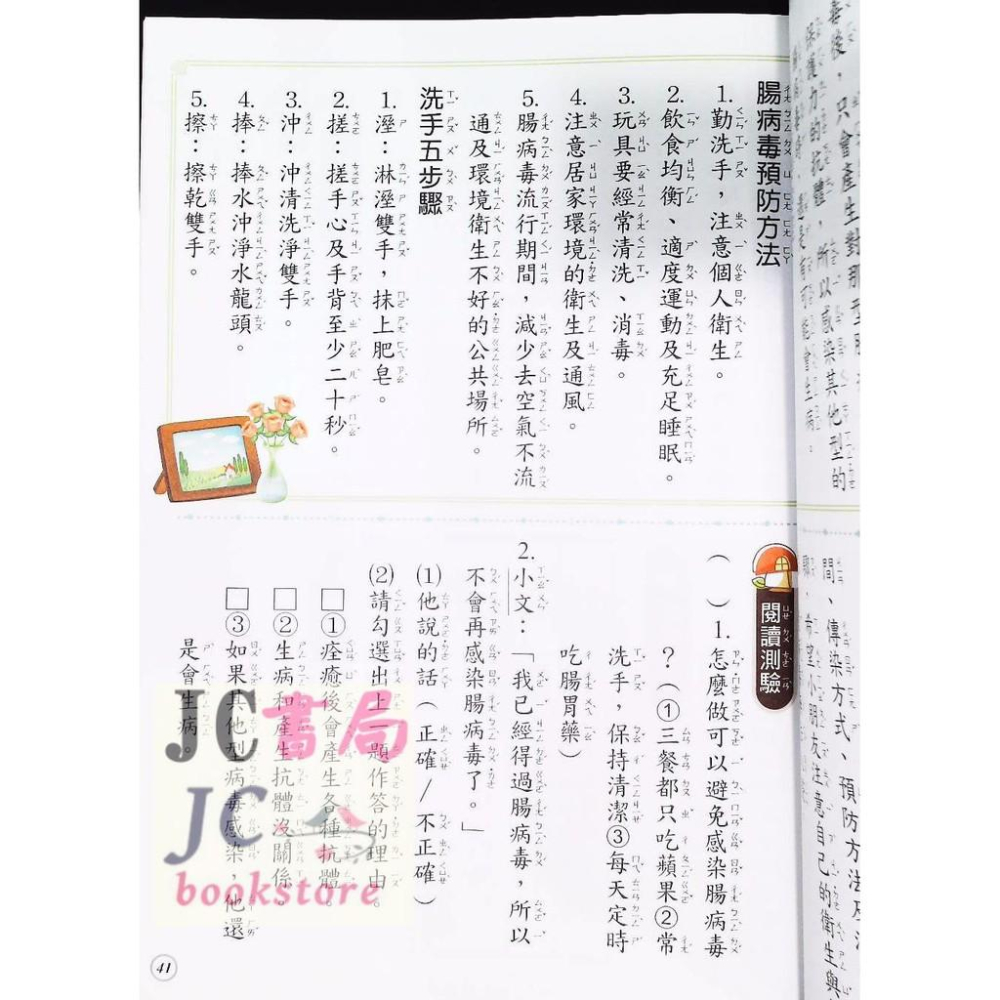 毒後，只會產生對那型
保護力的抗體，所以感染其他型的
腸病毒預防方法
1.勤洗手，注意個人衛生。
2.飲食均衡、適度運動及充足睡眠。
3.玩具要經常清洗、消毒。
4.注意居家環境的衛生及通風。
5.腸病毒流行期間，減少去空氣不流
通及環境衛生不好的公共場所。
洗手五步驟
1.溼：淋溼雙手，抹上肥皂。
2.搓：搓手心及手背至少二十秒。
3.沖：沖清洗淨雙手。
4.捧：捧水沖淨水龍頭。
5.擦：擦乾雙手。
間、傳染方式、預防方法及
希望小朋友注意自己的衛生與
閱讀測驗
（　）1.怎麼做可以避免感染腸病毒
？（①三餐都只吃蘋果②常
洗手，保持清潔③每天定時
吃腸胃藥）
2.小文：「我已經得過腸病毒，所以
不會再感染腸病毒了。」
⑴他說的話（正確／不正確）
⑵請勾選出上一題作答的理由。
□①痊癒後會產生各種抗體。
□②生病和產生抗體沒關係。
□③如果其他型病毒感染，他還
是會生病。
JC書局
JC
bookstore
41